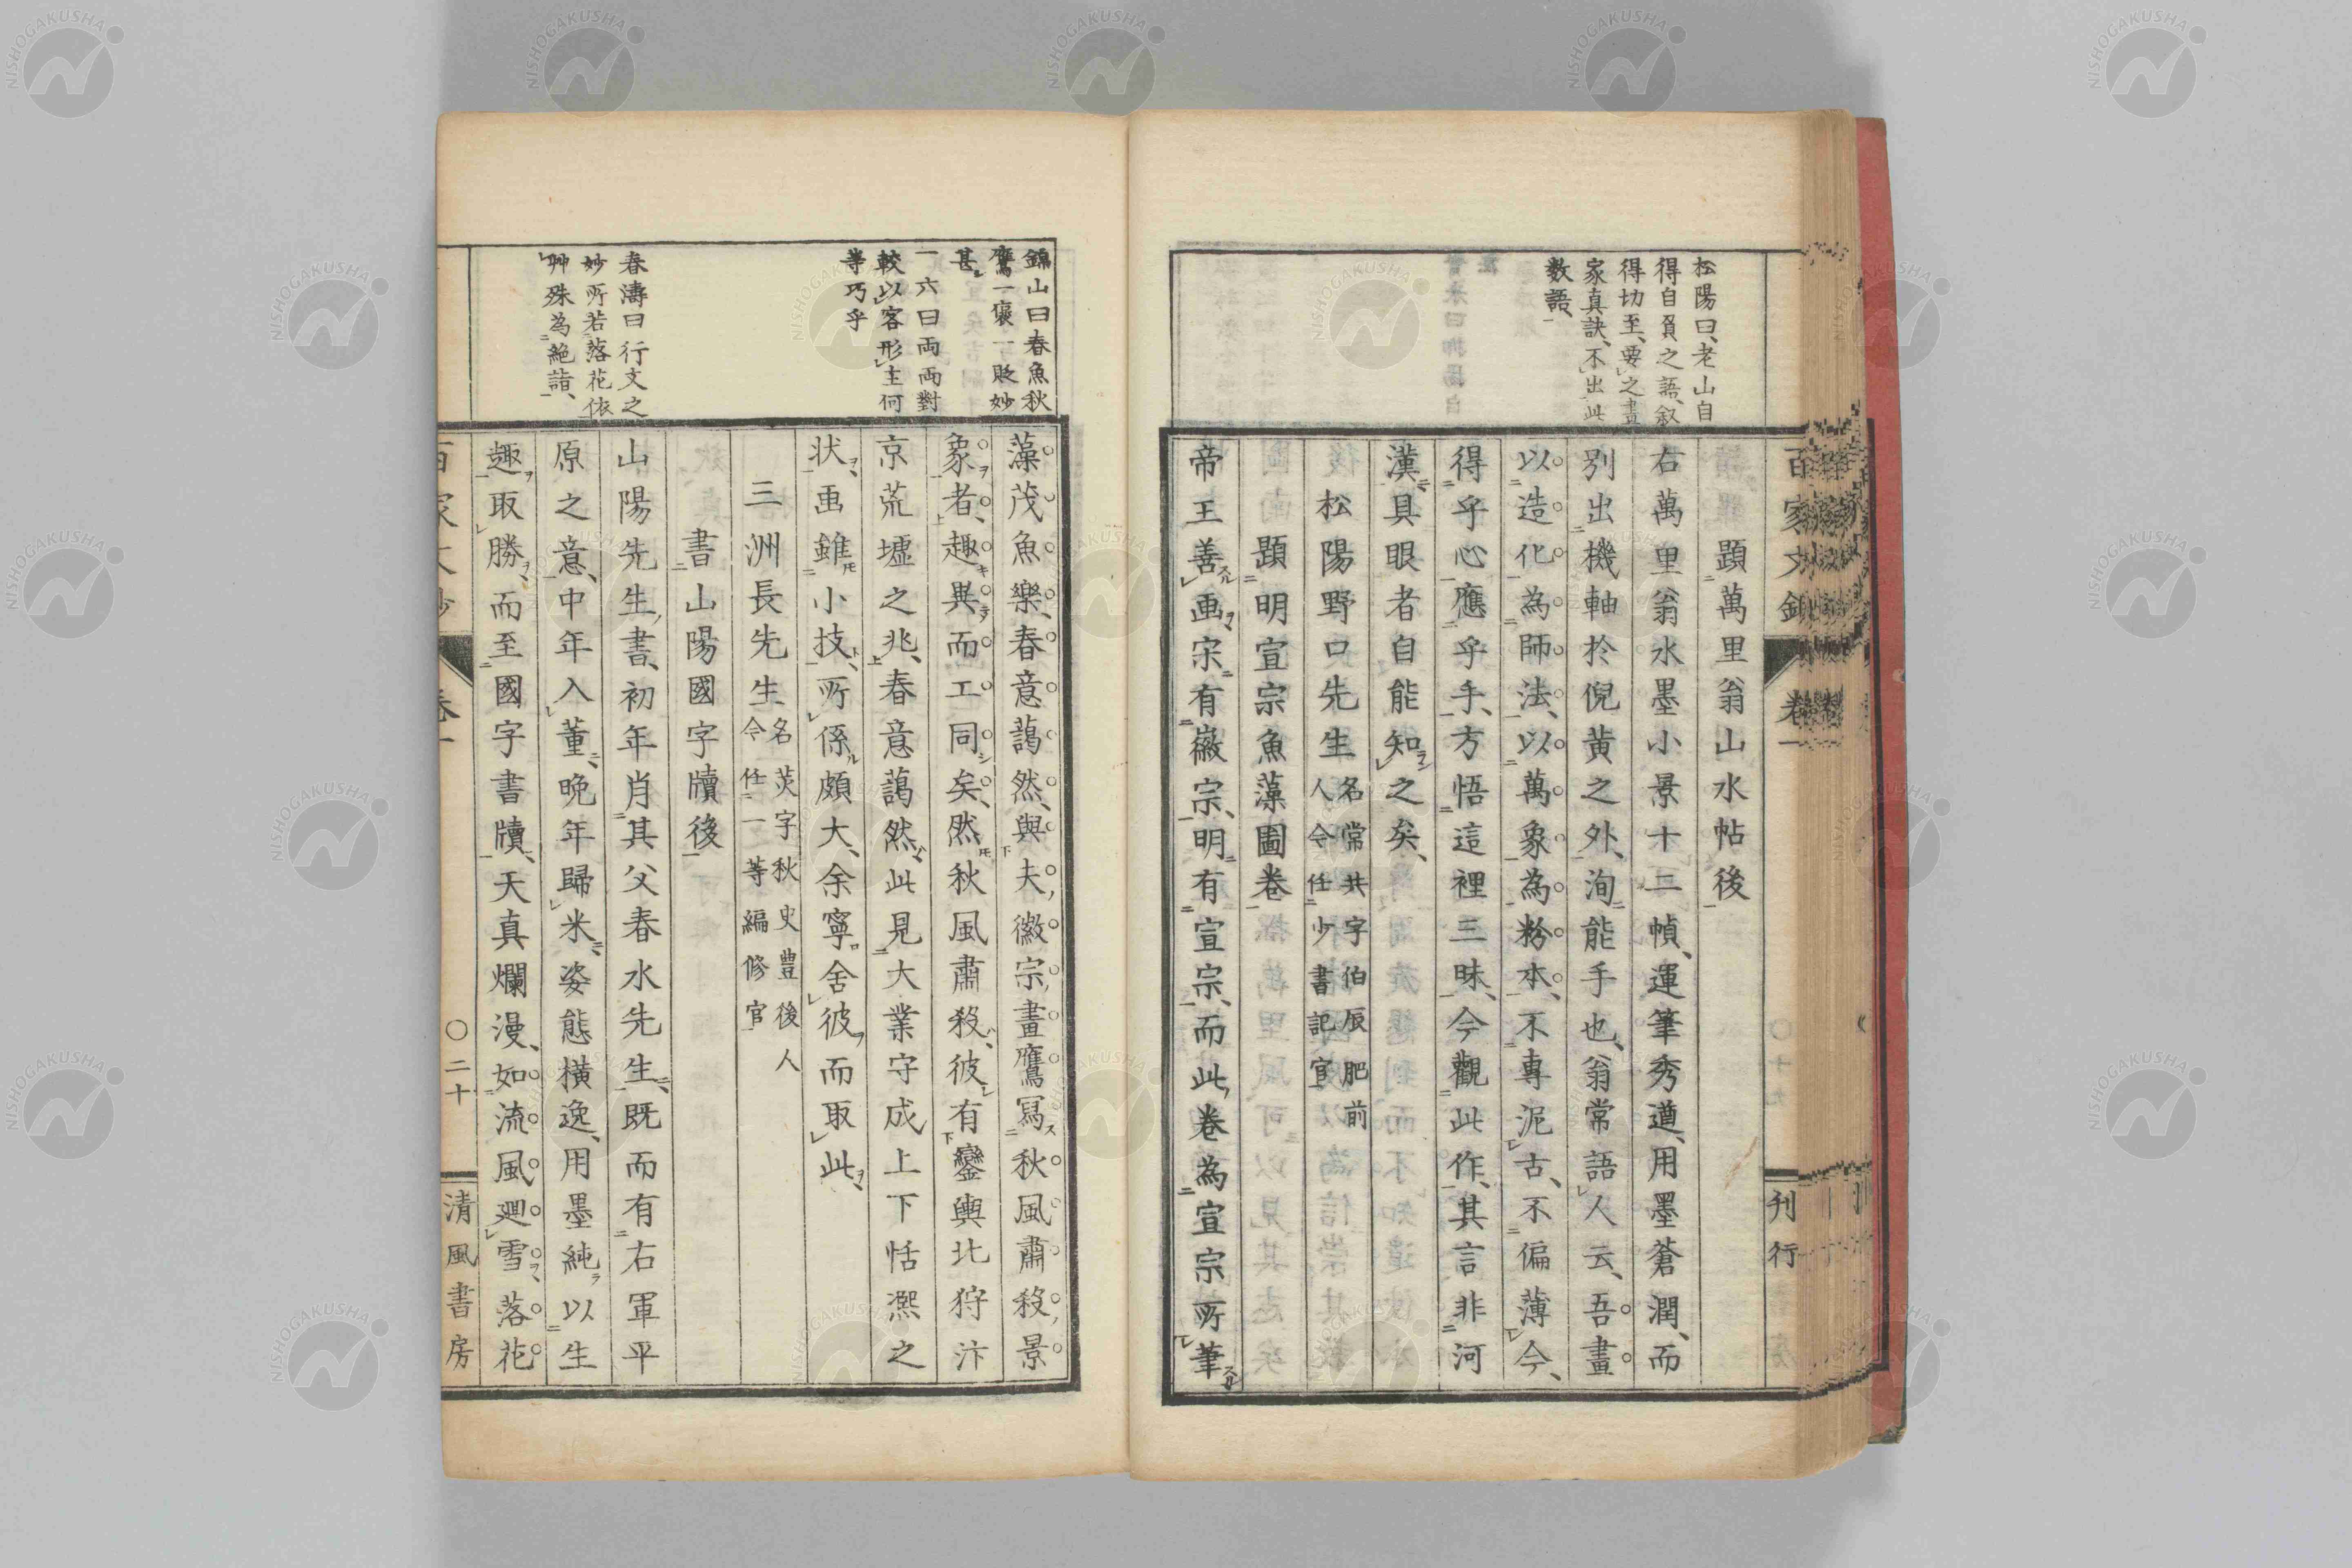 百家文鈔
卷一
刊行
松陽曰、老山自
得自負之語、叙
得切至、要之畫
家真訣、不出此
数語、
題萬里翁山水帖後
右萬里翁水墨小景十二幀、運筆秀遒、用墨蒼潤、而
別出機軸於倪黄之外、洵能手也、翁常語人云、吾畫
以造化為師法、以萬象為粉本、不專泥古、不偏薄今、
得乎心應乎手、方悟這裡三昧、今觀此作、其言非河
漢、具眼者自能知之矣、
松陽野口先生
名常共字伯辰肥前
人今任少書記官
題明宣宗魚藻圖卷
帝王善画、宋有徽宗、明有宣宗、而此卷為宣宗所筆
錦山曰春魚秋
鷹一褒一貶妙
甚
一六曰両両對
較以客形主何
等巧乎
春濤曰行文之
妙所若落花依
艸殊為絶詣、
藻茂魚樂、春意藹然、與夫徽宗畫鷹冩秋風肅殺景
象者、趣異而工同矣、然秋風肅殺、彼有鑾輿北狩汴
京荒墟之兆、春意藹然、此見大業守成上下恬凞之
状、画雖小技、所係頗大、余寧舍彼而取此、
三洲長先生
名芡字秋史豊後人
今任一等編修官
書山陽國字牘後
山陽先生書、初年肖其父春水先生、既而有右軍平
原之意、中年入董、晩年歸米、姿態横逸、用墨純以生
趣取勝、而至國字書牘、天真爛漫、如流風廻雪、落花
百家文鈔
卷一
〇二十
清風書房